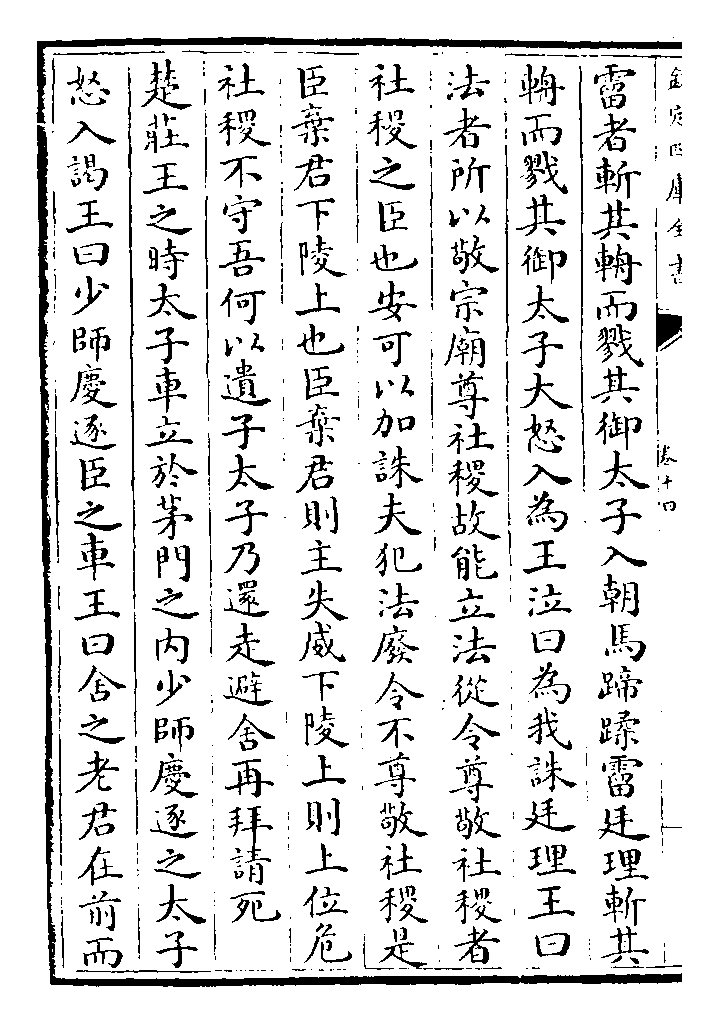 欽定四庫全書
卷十四
霤者斬其輈而戮其御太子入朝馬蹄蹂霤廷理斬其
輈而戮其御太子大怒入為王泣曰為我誅廷理王曰
法者所以敬宗廟尊社稷故能立法從令尊敬社稷者
社稷之臣也安可以加誅夫犯法廢令不尊敬社稷是
臣棄君下陵上也臣棄君則主失威下陵上則上位危
社稷不守吾何以遺子太子乃還走避舍再拜請死
楚莊王之時太子車立於茅門之内少師慶逐之太子
怒入謁王曰少師慶逐臣之車王曰舍之老君在前而